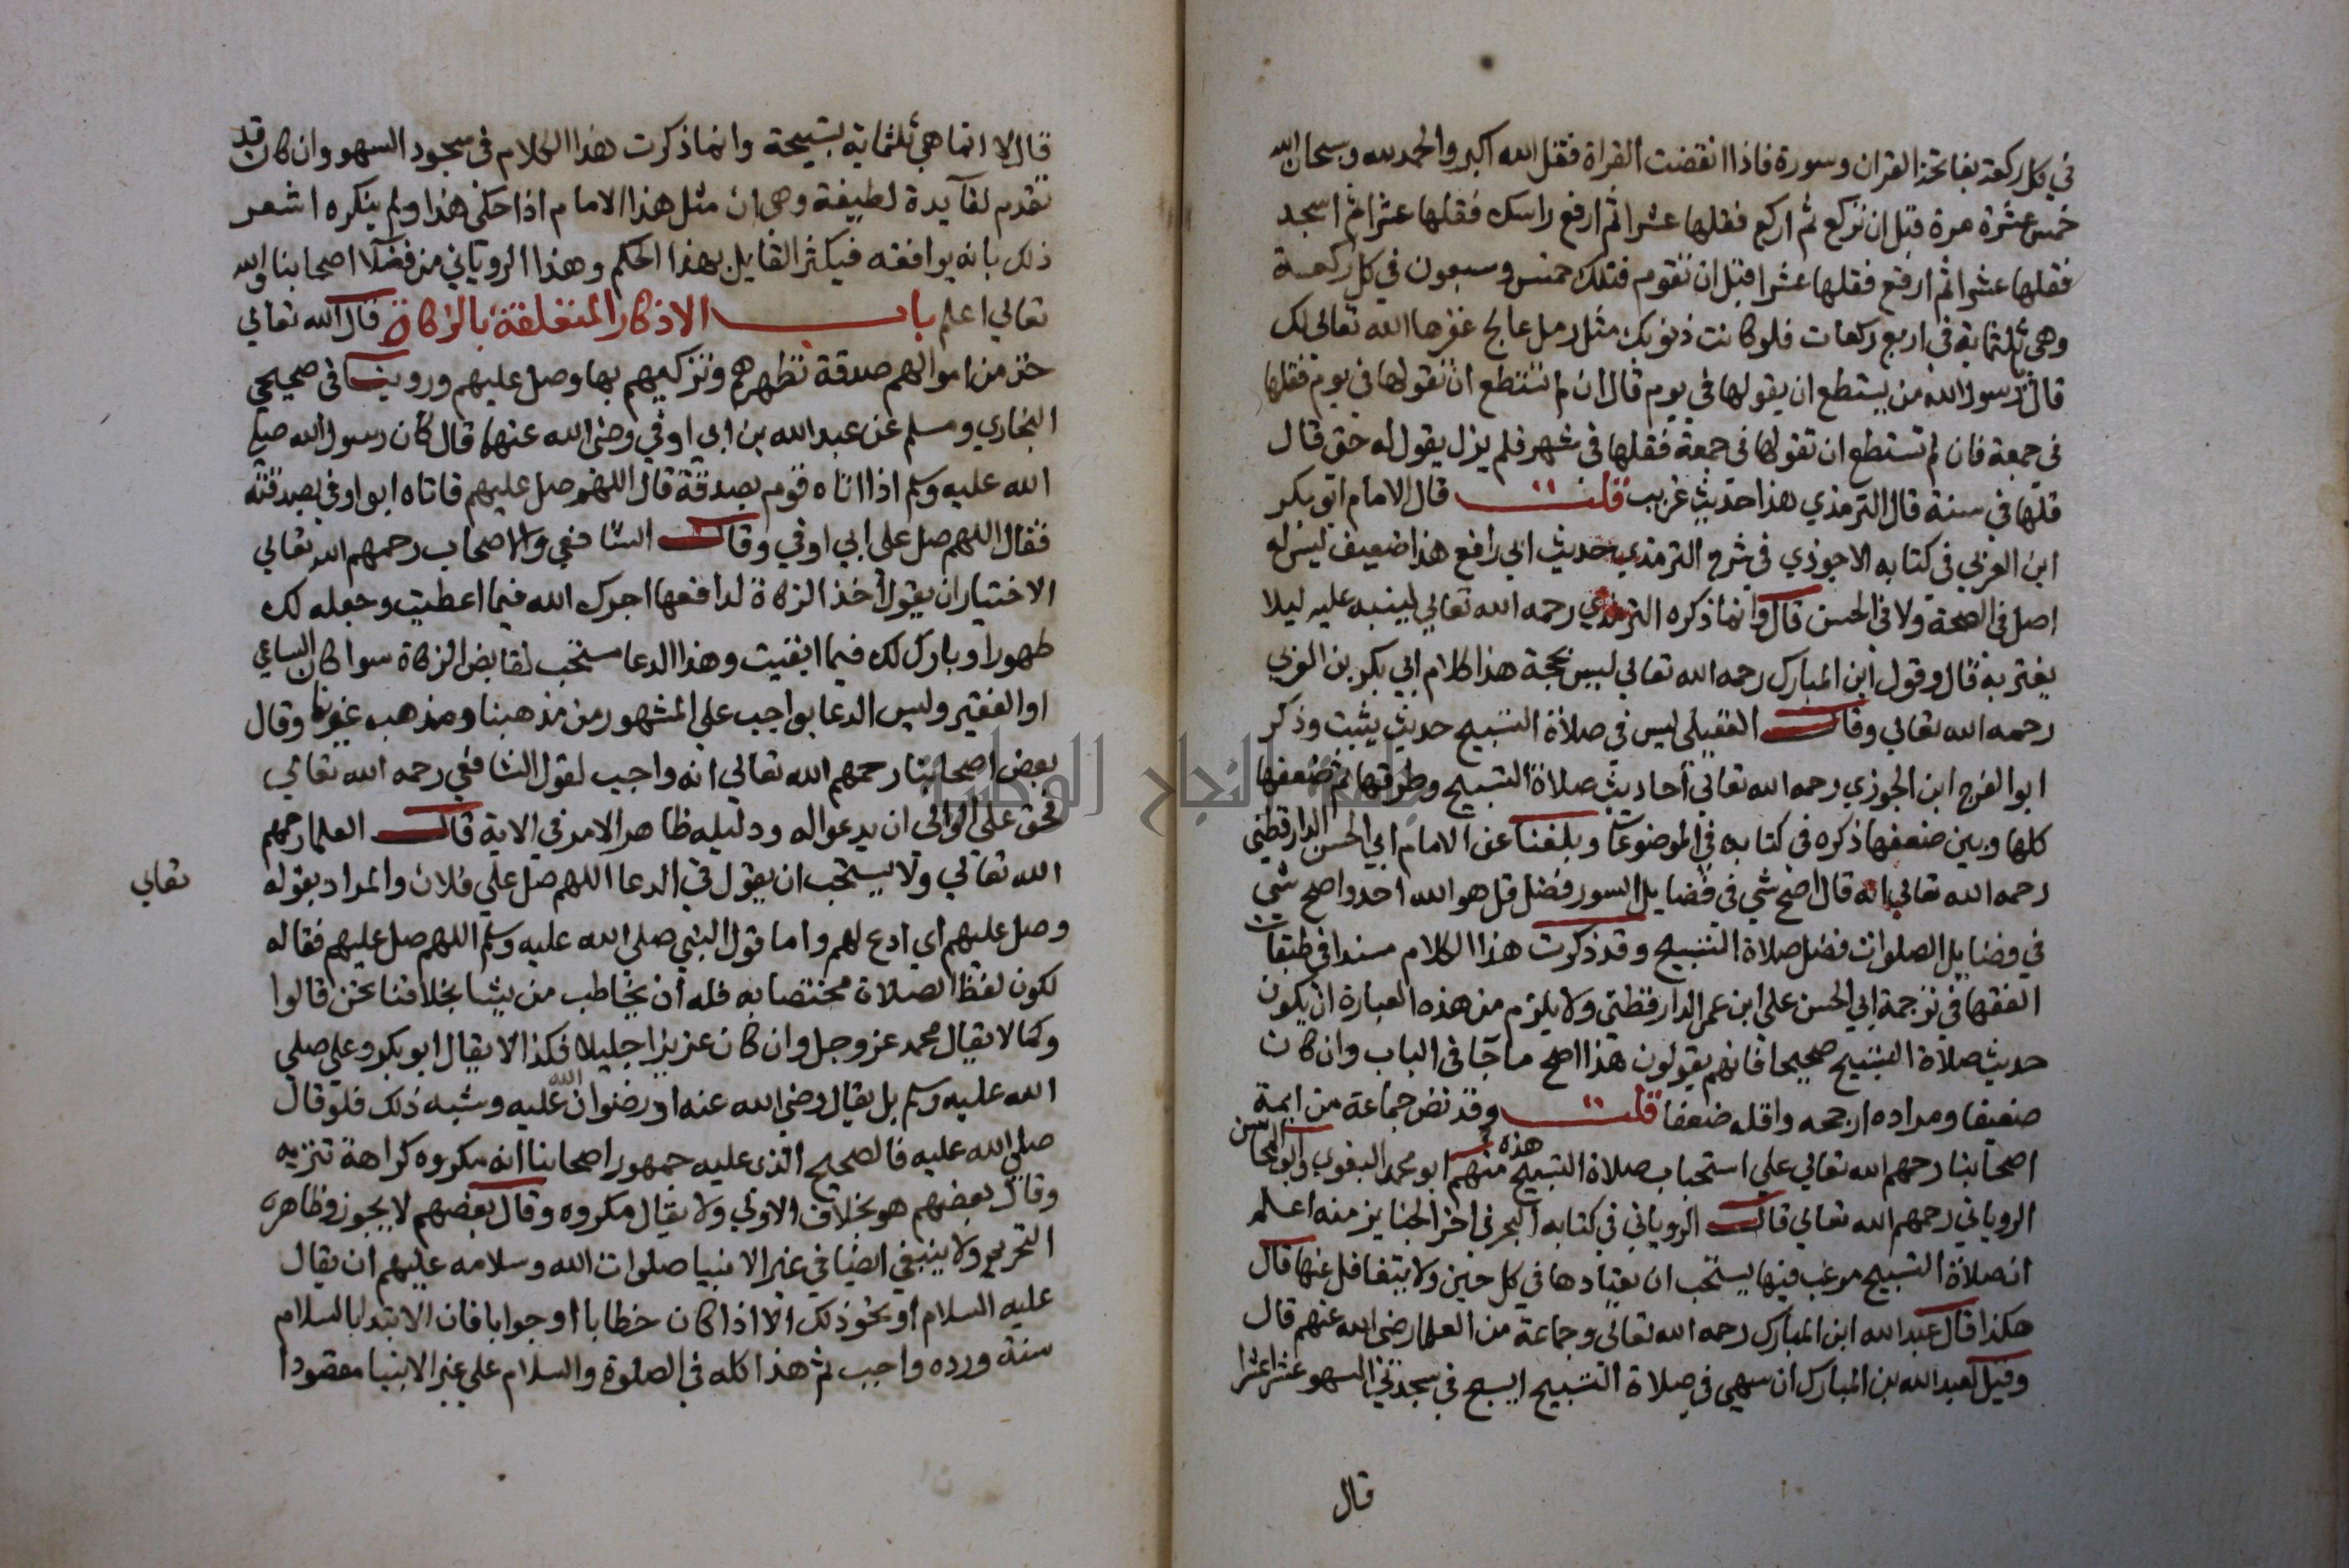 في كل ركعة بفاتحة القران وسورة فاذا انقضت القراة فقل الله اكبر والحمد لله وسبحان الله
خمس عشرة مرة قبل ان تركع ثم اركع فقلها عشرا ثم ارفع راسك فقلها عشرا ثم اسجد
فقلها عشرا ثم ارفع فقلها عشرا قبل ان تقوم فتلك خمس وسبعون في كل ركعة
وهي ثلثماية في اربع ركعات فلو كانت ذنوبك مثل رمل عالج غفرها الله تعالى لك
قال يرسول الله من يستطع ان يقولها في يوم قال ان لم تستطع ان تقولها في يوم فقلها
في جمعة فان لم تستطع ان تقولها في جمعة فقلها في شهر فلم يزل يقول له حتى قال
قلها في سنة قال الترمذي هذا حديث غريب قلت قال الامام ابو بكر
ابن العربي في كتابه الاحوذي في شرح الترمذي حديث ابي رافع هذا ضعيف ليس له
اصل في الصحة ولا في الحسن قال وانما ذكره الترمذي رحمه الله تعالي لينبه عليه ليلا
يغتر به قال وقول ابن المبارك رحمه الله تعالي ليس بحجة هذا كلام ابي بكر بن العربي
رحمه الله تعالي وقال العقيلي ليس في صلاة التسبيح حديث يثبت وذكر
ابو الفرج ابن الجوزي رحمه الله تعالي احاديث صلاة التسبيح وطرقها ثم ضعفها
كلها وبين ضعفها ذكره في كتابه في الموضوعات وبلغنا عن الامام ابي الحسن الدارقطني
رحمه الله تعالي انه قال اصح شي في فضايل السور فضل قل هو الله احد واصح شي
في فضايل الصلوات فضل صلاة التسبيح وقد ذكرت هذا الكلام مسندا في طبقات
الفقها في ترجمة ابي الحسن علي ابن عمر الدارقطني ولا يلزم من هذه العبارة ان يكون
حديث صلاة التسبيح صحيحا فانهم يقولون هذا اصح ما جا في الباب وان كان
ضعيفا ومراده ارجحه واقله ضعفا قلت وقد نص جماعة من ايمة
اصحابنا رحمهم الله تعالي علي استحباب صلاة التسبيح هذه منهم ابو محمد البغوي وابو المحاسن
الروياني رحمهم الله تعالي قال الروياني في كتابه البحر في اخر الجنايز منه اعلم
ان صلاة التسبيح مرغب فيها يستحب ان يعتادها في كل حين ولا يتغافل عنها قال
هكذا قال عبد الله ابن المبارك رحمه الله تعالي وجماعة من العلما رضي الله عنهم قال
وقيل لعبد الله بن المبارك ان سهي في صلاة التسبيح ايسبح في سجدتي السهو عشرا عشرا
قال
قال لا انما هي ثلثماية تسبيحة وانما ذكرت هذا الكلام في سجود السهو وان كان قد
تقدم لفآيدة لطيفة وهي ان مثل هذا الامام اذا حكي هذا ولم ينكره اشعر
ذلك بانه يوافقه فيكثر القايل بهذا الحكم وهذا الروياني من فضلآ اصحابنا والله
تعالي اعلم باب الاذكار المتعلقة بالزكاة قال الله تعالي
خذ من اموالهم صدقة تطهرهم وتزكيهم بها وصل عليهم وروينا في صحيحي
البخاري ومسلم عن عبد الله بن ابي اوفي رضي الله عنهما قال كان رسول الله صلي
الله عليه وسلم اذا اتاه قوم بصدقة قال اللهم صل عليهم فاتاه ابو اوفي بصدقته
فقال اللهم صل علي ابي اوفي وقال الشافعي والاصحاب رحمهم الله تعالي
الاختيار ان يقول اخذ الزكاة لدافعها اجرك الله فيما اعطيت وجعله لك
طهورا وبارك لك فيما ابقيت وهذا الدعا مستحب لقابض الزكاة سوا كان الساعي
او الفقير وليس الدعا بواجب علي المشهور من مذهبنا ومذهب غيرنا وقال
بعض اصحابنا رحمهم الله تعالي انه واجب لقول الشافعي رحمه الله تعالي
فحق علي الوالي ان يدعو له ودليله ظاهر الامر في الاية قال العلما رحمهم
الله تعالي ولا يستحب ان يقول في الدعا اللهم صل علي فلان والمراد بقوله تعالي
وصل عليهم اي ادع لهم واما قول النبي صلي الله عليه وسلم اللهم صل عليهم فقاله
لكون لفظ الصلاة مختصا به فله ان يخاطب من يشا بخلافنا نحن قالوا
وكما لا يقال محمد عز وجل وان كان عزيزا جليلا فكذا لا يقال ابو بكر وعلي صلي
الله عليه وسلم بل يقال رضي الله عنه او رضوان الله عليه وشبه ذلك فلو قال
صلي الله عليه فالصحيح الذي عليه جمهور اصحابنا انه مكروه كراهة تنزيه
وقال بعضهم هو بخلاف الاولي ولا يقال مكروه وقال بعضهم لا يجوز وظاهره
التحريم ولا ينبغي ايضا في غير الانبيا صلوات الله وسلامه عليهم ان يقال
عليه السلام او نحو ذلك الا اذا كان خطابا او جوابا فان الابتدا بالسلام
سنة ورده واجب ثم هذا كله في الصلوة والسلام علي غير الانبيا مقصودا
جامعة النجاح الوطنية